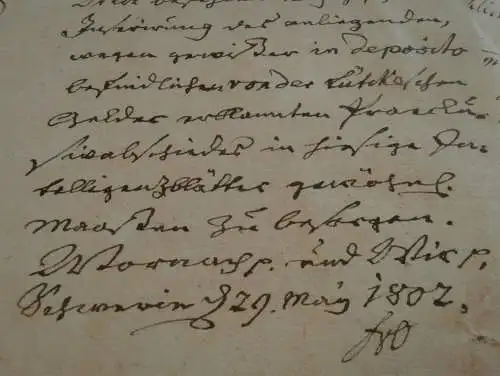 Inserirung des anliegenden,
wegen gewißer in deposito
befindlichen von der Lütckeschen
Gelder erkannten Praeclu-
sivabschiedes in hiesige In-
telligenzblätter gewöhnl.
Maaßen zu besorgen.
Wornach p. und Wir p.
Schwerin d 29. May 1802.